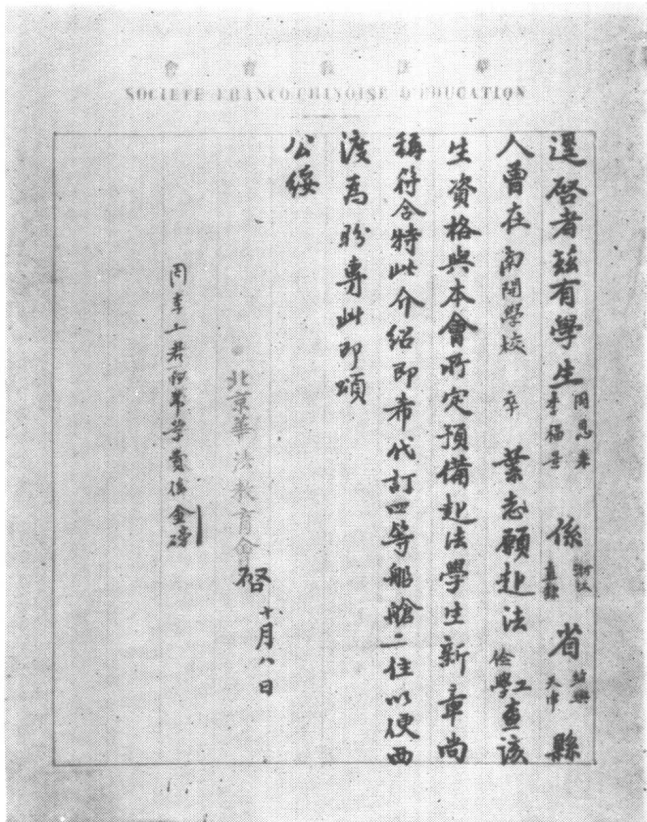 會育教法華
SOCIETE FRANCO-CHINOISE D'EDUCATION
逕啓者茲有學生周恩來李福景係浙江直隸省紹興天津縣
人曾在南開學校卒業志願赴法儉學工查該
生資格與本會所定預備赴法學生新章尚
稱符合特此介紹即希代訂四等船艙二位以便西
渡為盼專此即頌
公綏
北京華法教育會啓十月八日
周李二君
學費係金磅